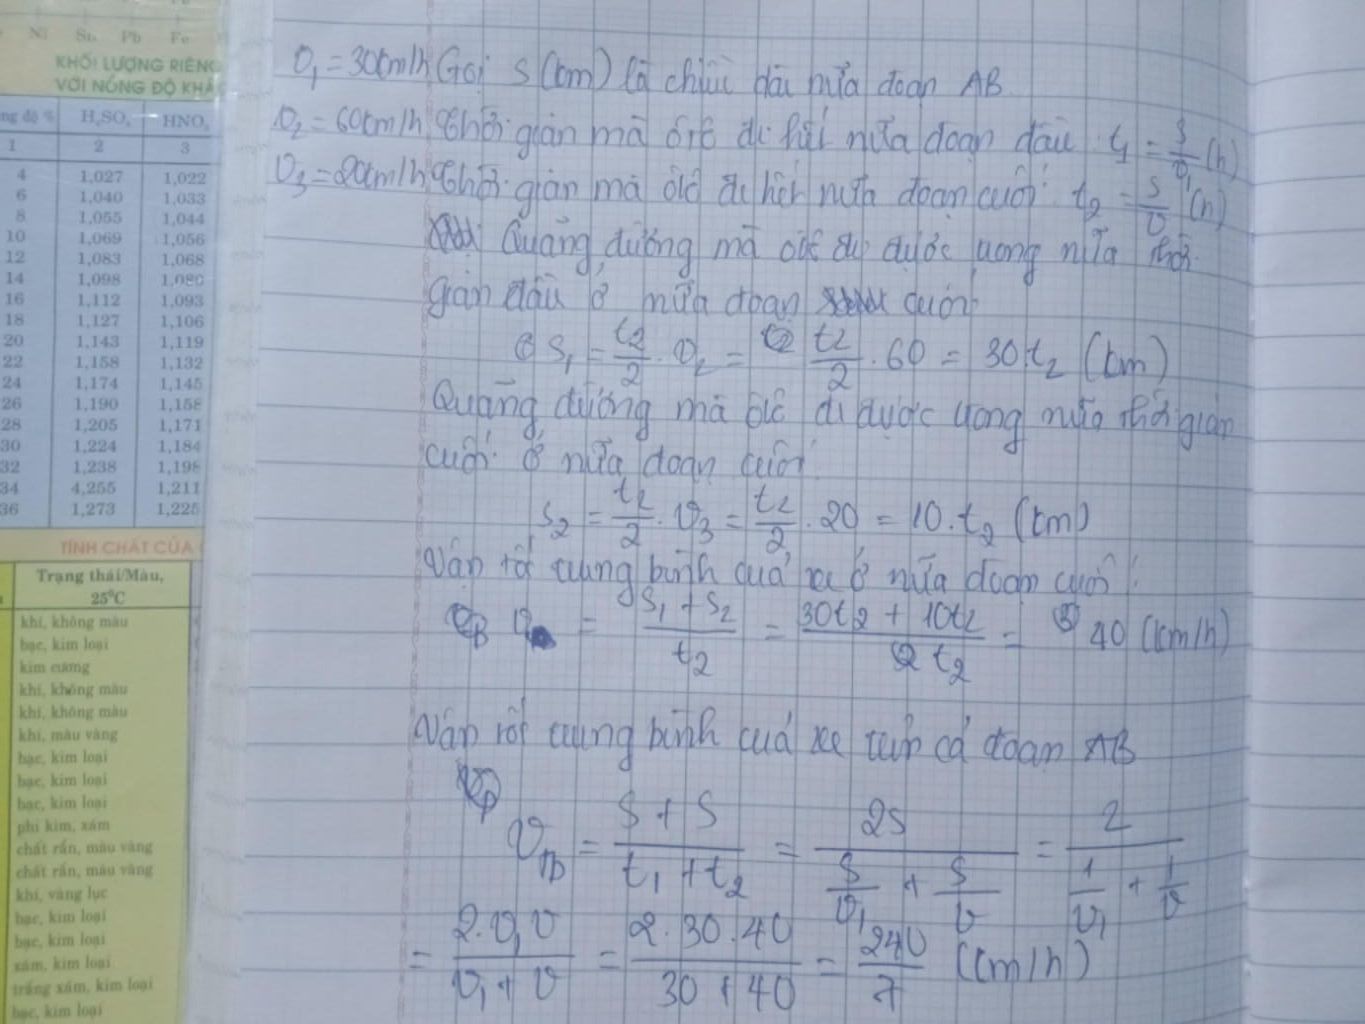 Ni Sn Pb Fe
KHỐI LƯỢNG RIÊNG
VỚI NỒNG ĐỘ KHÁC
ng độ % H₂SO₄ HNO₃
1 2 3
4 1,027 1,022
6 1,040 1,033
8 1,055 1,044
10 1,069 1,056
12 1,083 1,068
14 1,098 1,080
16 1,112 1,093
18 1,127 1,106
20 1,143 1,119
22 1,158 1,132
24 1,174 1,145
26 1,190 1,158
28 1,205 1,171
30 1,224 1,184
32 1,238 1,198
34 4,255 1,211
36 1,273 1,225
TÍNH CHẤT CỦA
Trạng thái/Màu,
25⁰C
khí, không màu
bạc, kim loại
kim cương
khí, không màu
khí, không màu
khí, màu vàng
bạc, kim loại
bạc, kim loại
bạc, kim loại
phi kim, xám
chất rắn, màu vàng
chất rắn, màu vàng
khí, vàng lục
bạc, kim loại
bạc, kim loại
xám, kim loại
trắng xám, kim loại
bạc, kim loại
v₁ = 30km/h Gọi s (km) là chiều dài nửa đoạn AB
v₂ = 60km/h Thời gian mà ôtô đi hết nửa đoạn đầu t₁ = s/v₁ (h)
v₃ = 20km/h Thời gian mà ôtô đi hết nửa đoạn cuối t₂ = s/v (h)
Quãng đường mà ôtô đi được trong nửa thời
gian đầu ở nửa đoạn cuối
s₁ = t₂/2 . v₂ = t₂/2 . 60 = 30t₂ (km)
Quãng đường mà ôtô đi được trong nửa thời gian
cuối ở nửa đoạn cuối
s₂ = t₂/2 . v₃ = t₂/2 . 20 = 10.t₂ (km)
Vận tốc trung bình của xe ở nửa đoạn cuối :
v = (s₁ + s₂)/t₂ = (30t₂ + 10t₂)/t₂ = 40 (km/h)
Vận tốc trung bình của xe trên cả đoạn AB
v_TB = (s + s)/(t₁ + t₂) = 2s/(s/v₁ + s/v) = 2/(1/v₁ + 1/v)
= 2.v₁v/(v₁ + v) = 2.30.40/(30 + 40) = 240/7 (km/h)